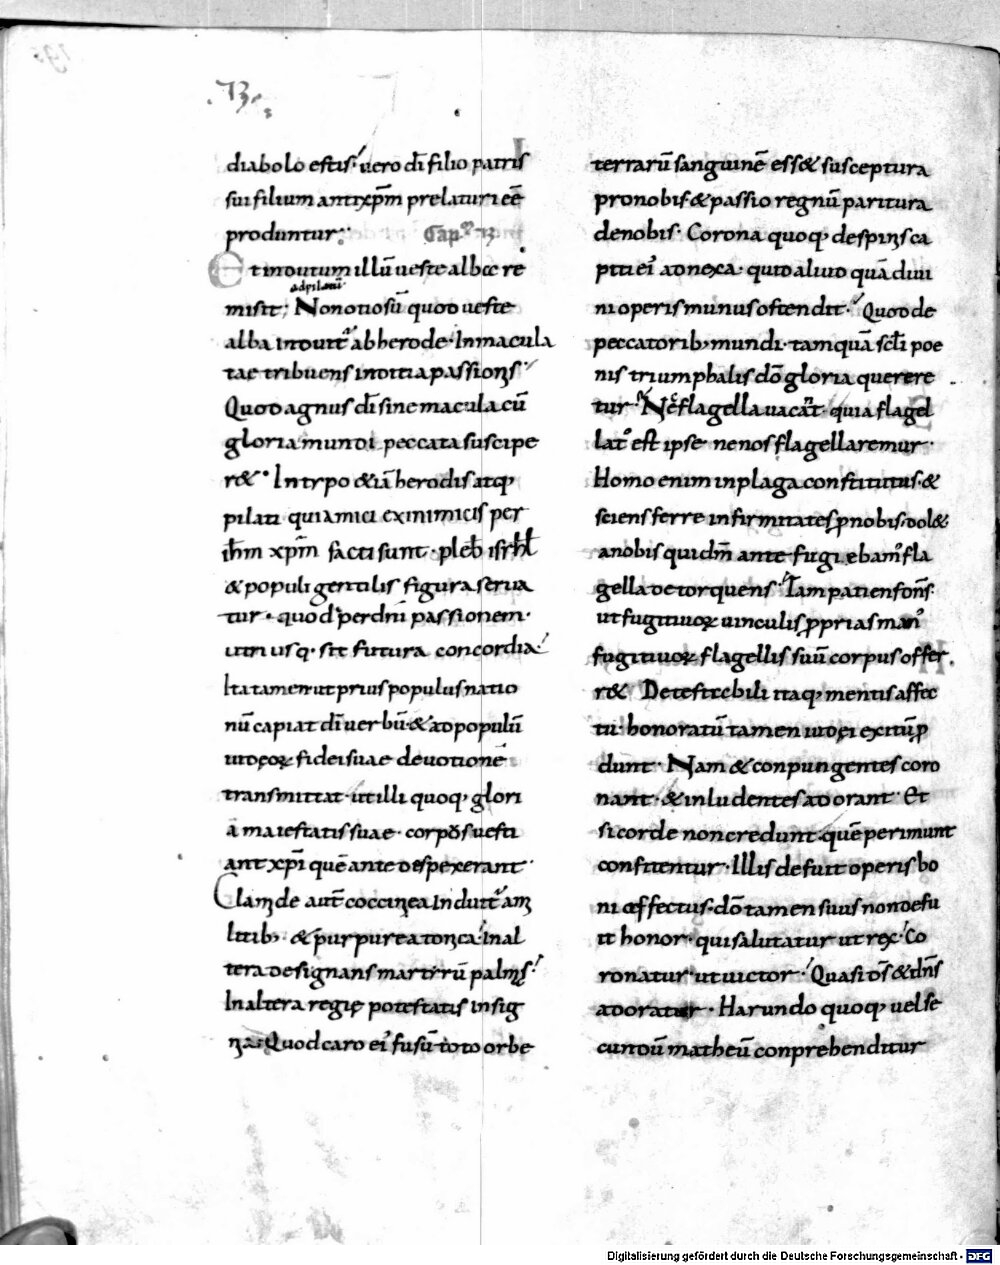 diabolo estis; uero dī filio patris
sui filium antixp̄m prelaturi eē
produntur; Cap
Et indutum illū ueste alba re
misit; ad pilatū Non otiosū quod ueste
alba induit᷑ ab herode· Inmacula
tae tribuens indicia passionis
Quod agnus dī sine macula cū
gloria mundi peccata suscipe
r&· In typo &iā herodis atq;
pilati qui amici ex inimicis per
ih̄m xp̄m facti sunt· pleb̄ isrhl̄
& populi gentilis figura serua
tur· quod per dn̄i passionem·
utriusq· sit futura concordia
Ita tamen ut prius populus natio
nū capiat dī uerbū· & ad populū
iudęoꝝ fidei suae deuotionē
transmittat· ut illi quoq; glori
a maiestatis suae· corpus uesti
ant xpī quē ante despexerant
Clamide aut̄ coccinea induit᷑ am
litib; & purpurea tonica· In al
tera designans martyrū palmas
In altera regię potestatis insig
nia: Quod caro ei᾽ fusū toto orbe
terrarū sanguinē ess& susceptura
pro nobis & passio regnū paritura
de nobis· Corona quoq; de spinis ca
piti ei᾽ adnexa· quid aliud quā diui
ni operis munus ostendit· Quod de
peccatorib; mundi· tamquā scl̄i poe
nis triumphalis dō gloria querere
tur· Nec flagella uacant· quia flagel
lat᾽ est ipse ne nos flagellaremur
Homo enim in plaga constitutus· &
sciens ferre infirmitates ꝓ nobis dol&·
a nobis quidm̄ ante fugiebam᾽ fla
gella detorquens· Tam patiens
ut fugitiuoꝝ uinculis ꝓprias man᾽
fugitiuoꝝ flagellis suū corpus offer
r& Detestabili itaq; mentis affec
tu· honoratū tamen iudęi exitū ꝓ
dunt· Nam & conpungentes coro
nant· & inludentes adorant· Et
si corde non credunt quē perimunt
confitentur· Illis defuit operis bo
ni affectus· dō tamen suus non defu
it honor· qui salutatur ut rex· Co
ronatur ut uictor· Quasi ds̄ & dn̄s
adoratur· Harundo quoq; uel se
cundū matheū conprehenditur
Digitalisierung gefördert durch die Deutsche Forschungsgemeinschaft - DFG